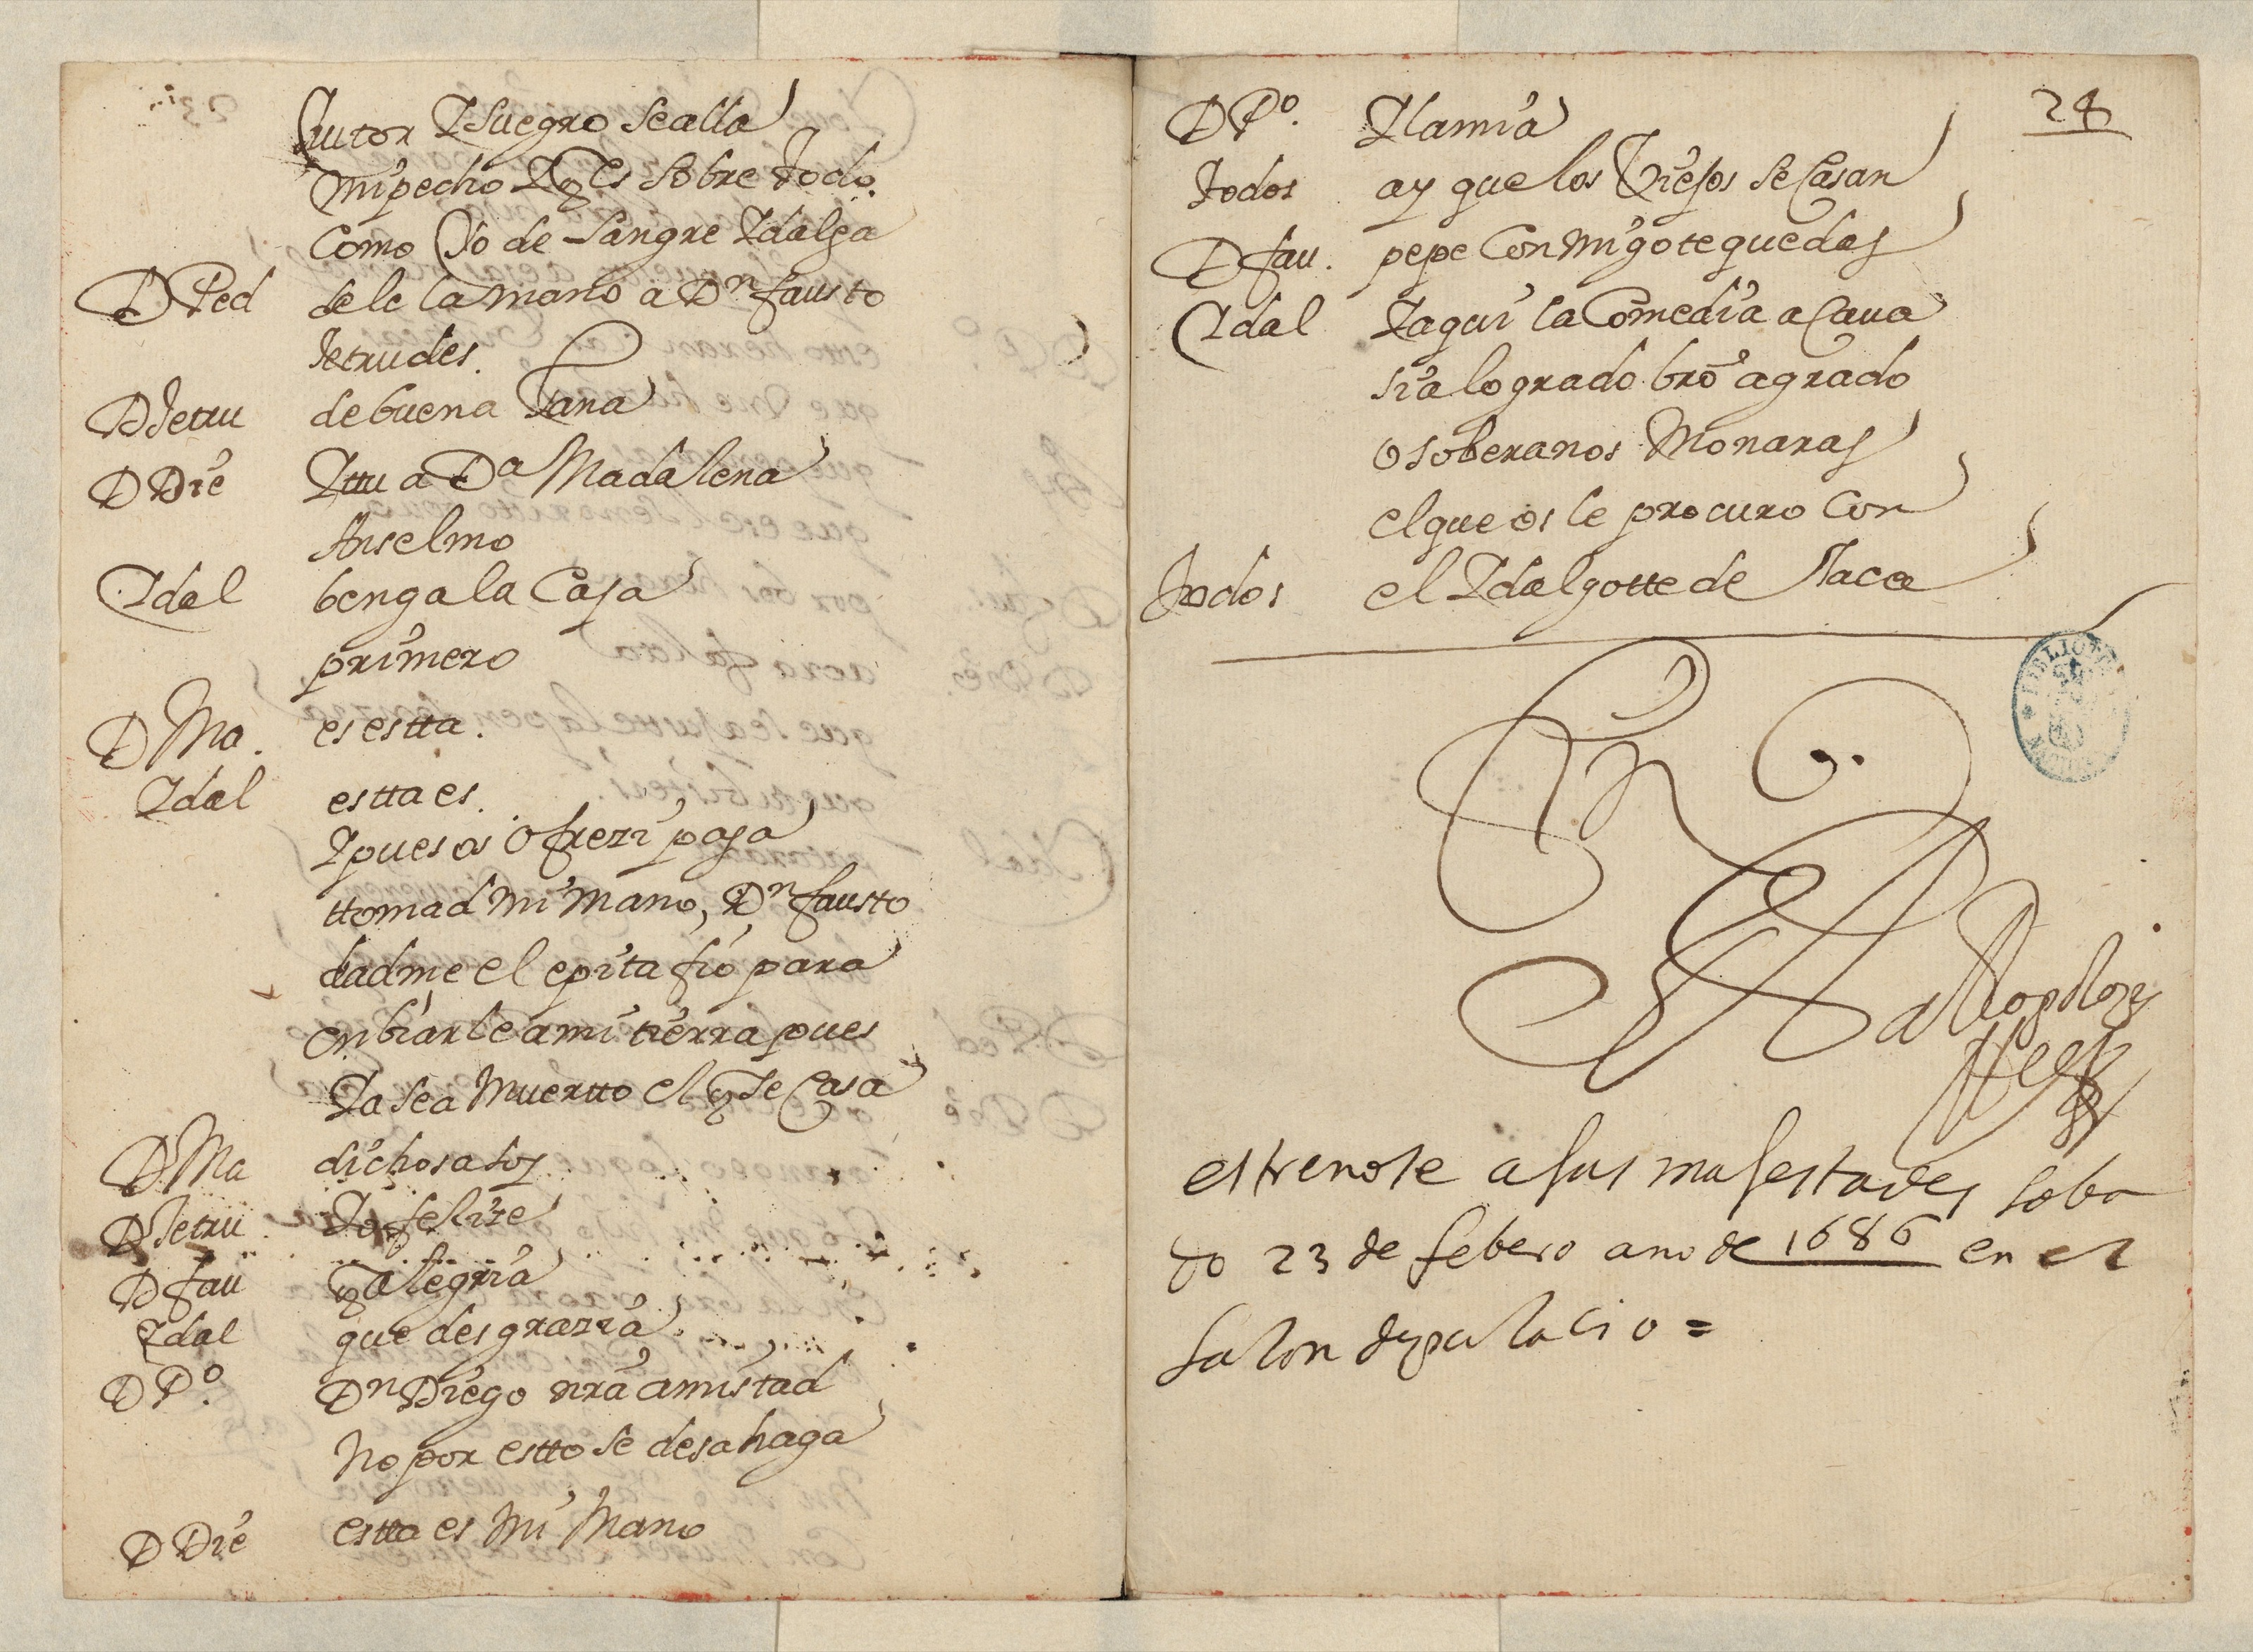 tutor Y Suegro se alla
mi pecho Y q es sobre todo.
Como Yo de Sangre Ydalga
D Ped dele la mano a Dn fausto
Jetrudes.
D Jetru de buena Gana
D Die Y ttu a Da Madalena
Anselmo
Ydal benga la Caja
primero
D Ma. es estta.
Ydal estta es.
Y pues os ofrezi paga
ttomad mi mano, Dn fausto
dadme el epitafio para
enbiarle a mi tierra pues
Ya sea Muertto el q Se Casa
D Ma dichosa soy
D Jetru. Yo felize
D fau q alegria
Ydal que desgrazia
D Po. Dn Diego nra amistad
No por estto se desahaga
D Die estta es mi Mano
24
D Po. Y la mia
todos ay que los Viejos se Casan
D fau. pepe Conmigo te quedas
Ydal Y aqui la Comedia aCava
si a logrado bro agrado
o soberanos Monaras
el que os le procuro Con
todos el Ydalgotte de Jaca
Fin
estrenose a sus majestades saba
do 23 de febero ano de 1686 en el
salon de palacio =